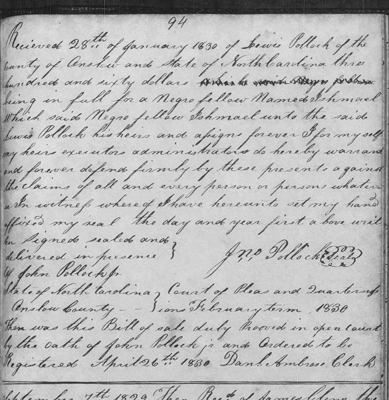 94
Recieved 28th of January 1830 of Lewis Pollock of the
county of Onslow and State of North Carolina three
hundred and sixty dollars
being in full for a Negro fellow Named Ishmael
Which said Negro fellow Ishmael unto the said
Lewis Pollock his heirs and asigns forever I for my self
my heirs executors administrators do hereby warrand
and forever defend firmly by these presents against
the claims of all and every person or persons whatever
In witness whereof I have hereunto set my hand
affixed my seal the day and year first above writ
en Signed sealed and
delivered in presence
of John Pollock jr
Jno Pollock Seal
State of North Carolina } Court of Pleas and Quarter Sess
Onslow County -- } ions February term 1830
Then was this Bill of sale duly Prooved in open Court
by the oath of John Pollock jr and Ordered to be
Registered April 26th 1830 Danl. Ambrose Clerk
September 7th 1829 Then Recd of James